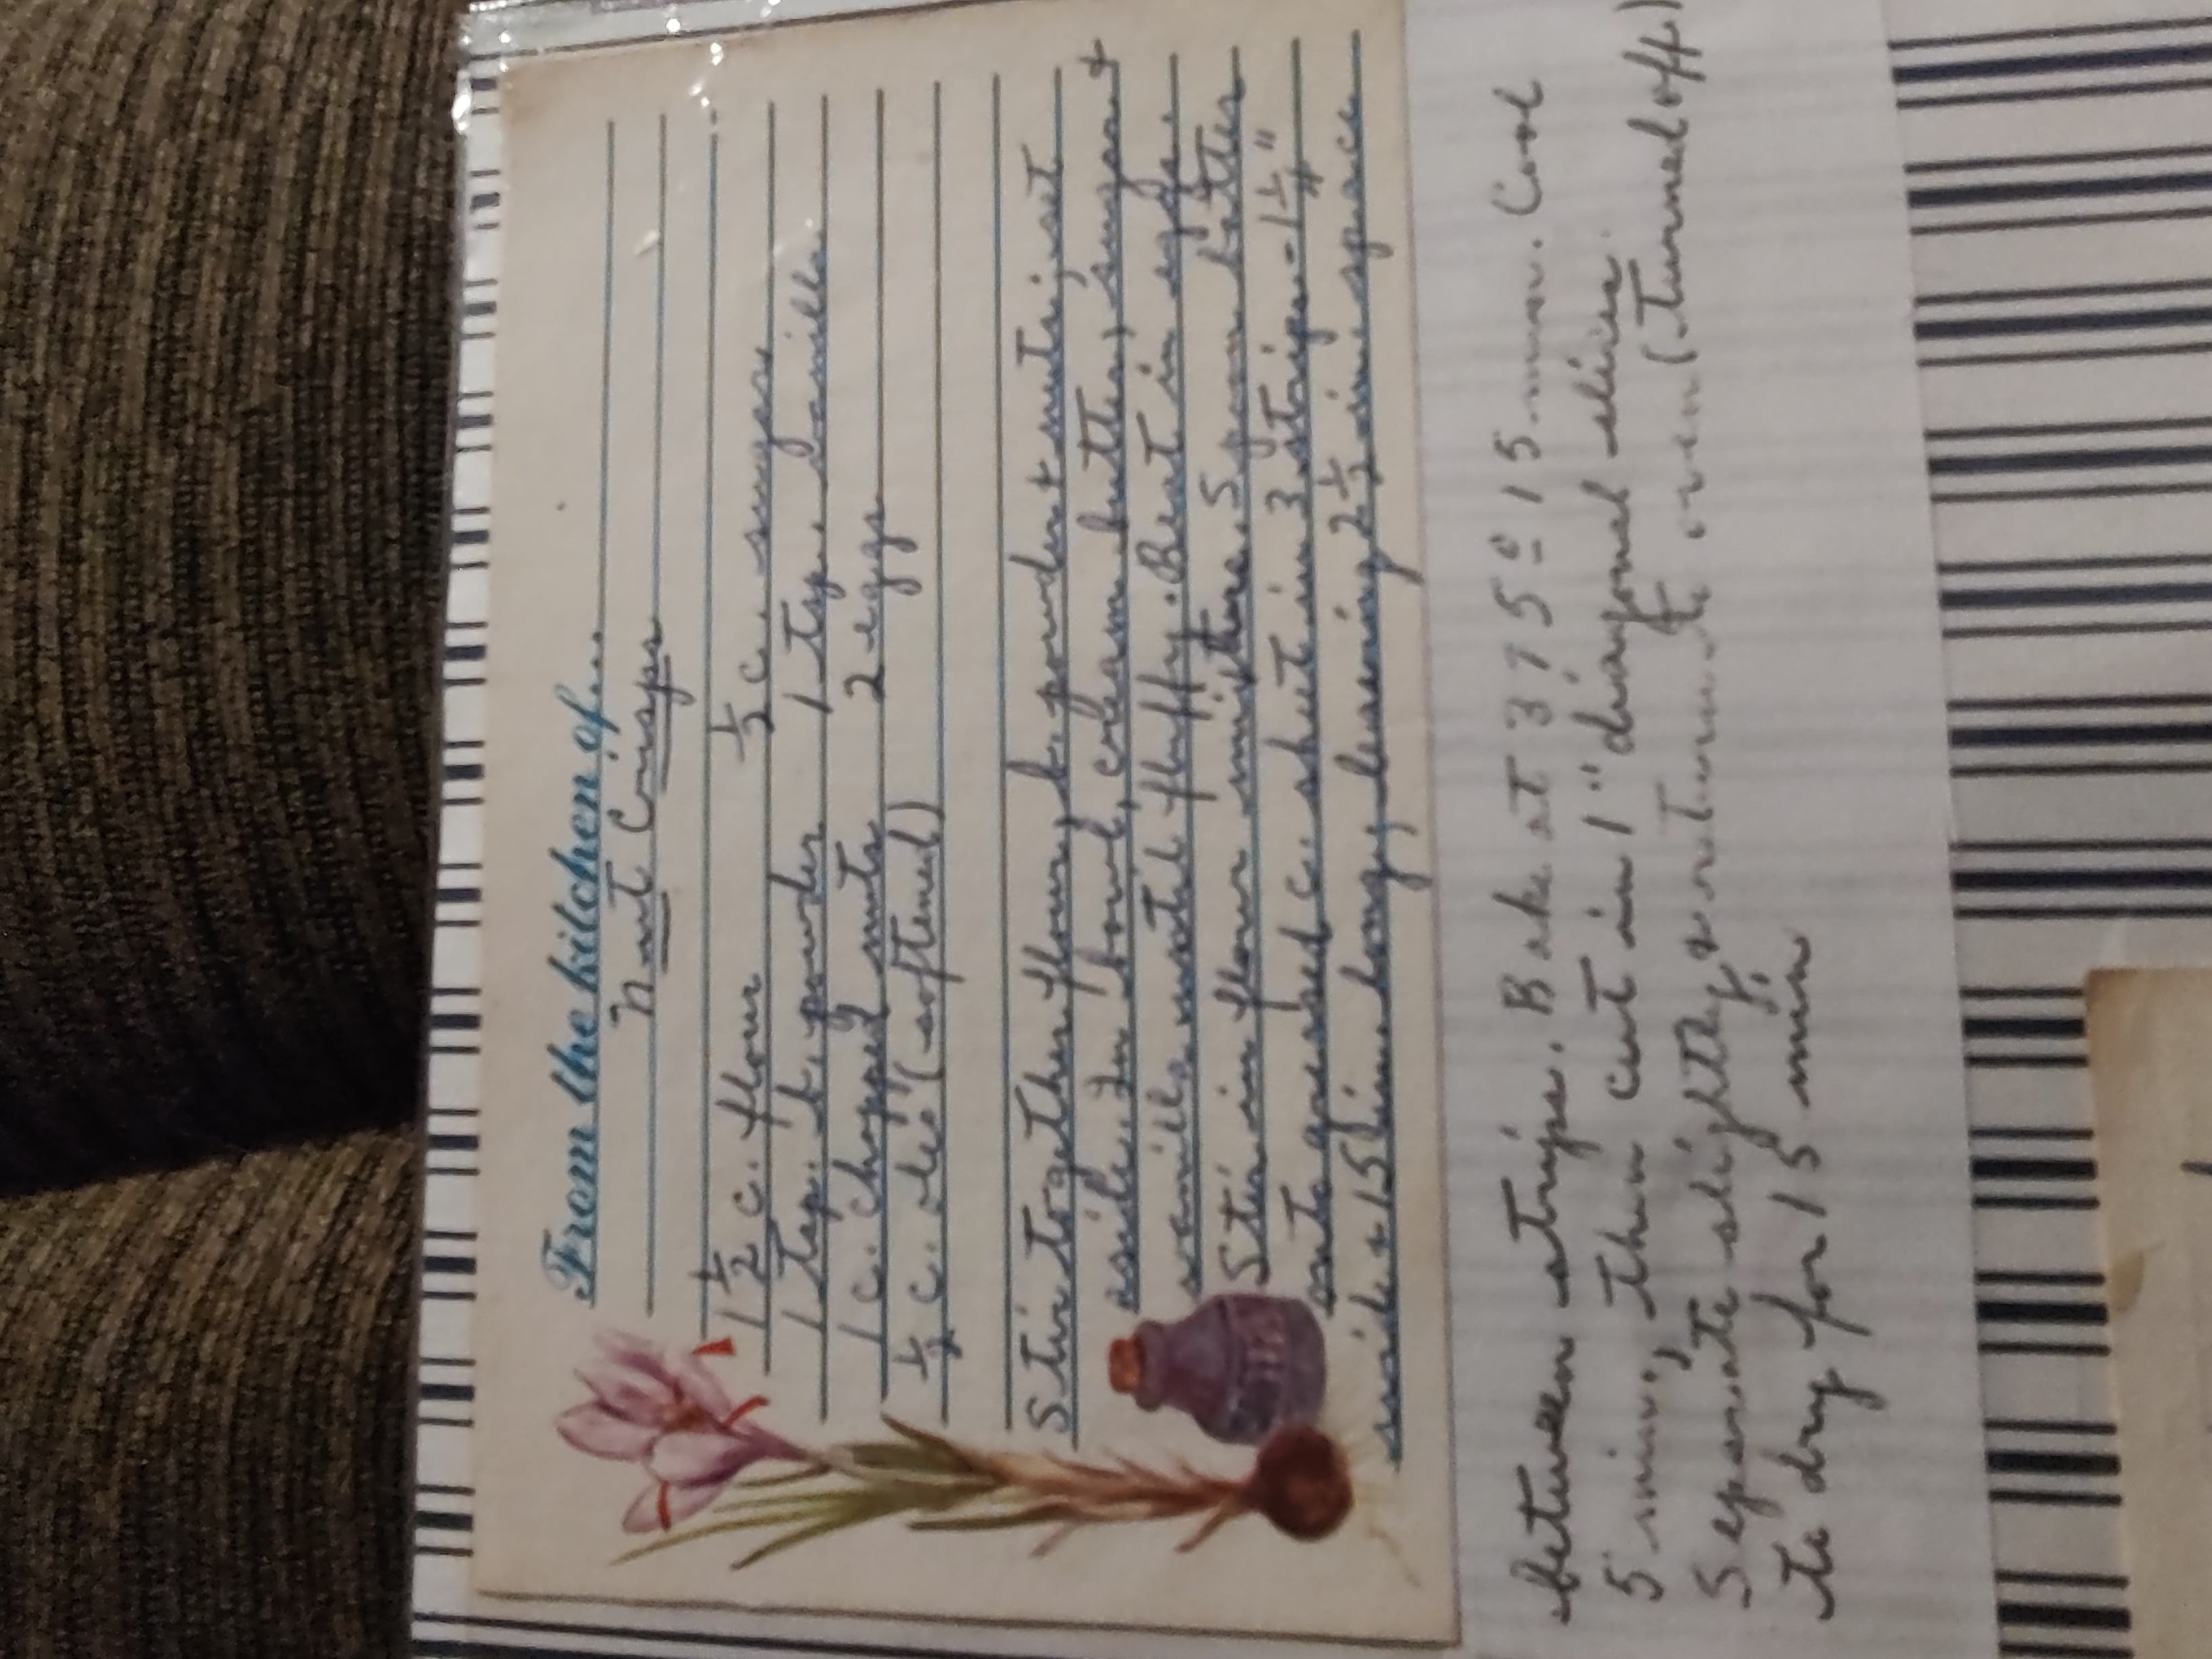 From the kitchen of...
Nut Crisps
1 1/2 c. flour 1/2 c. sugar
1 tsp. b. powder 1 tsp. vanilla
1 c. chopped nuts 2 eggs
1/2 c. oleo (softened)
Stir together flour, b. powder + nuts; set
aside. In bowl, cream butter, sugar +
vanilla until fluffy. Beat in eggs.
Stir in flour mixture. Spoon batter
onto greased c. sheet in 3 strips - 1 1/4"
wide + 15 in. long, leaving 2 1/2 in. space
between strips. Bake at 375° 15 min. Cool
5 min., then cut in 1" diagonal slices.
Seperate slightly, + return to oven (turned off)
to dry for 15 min